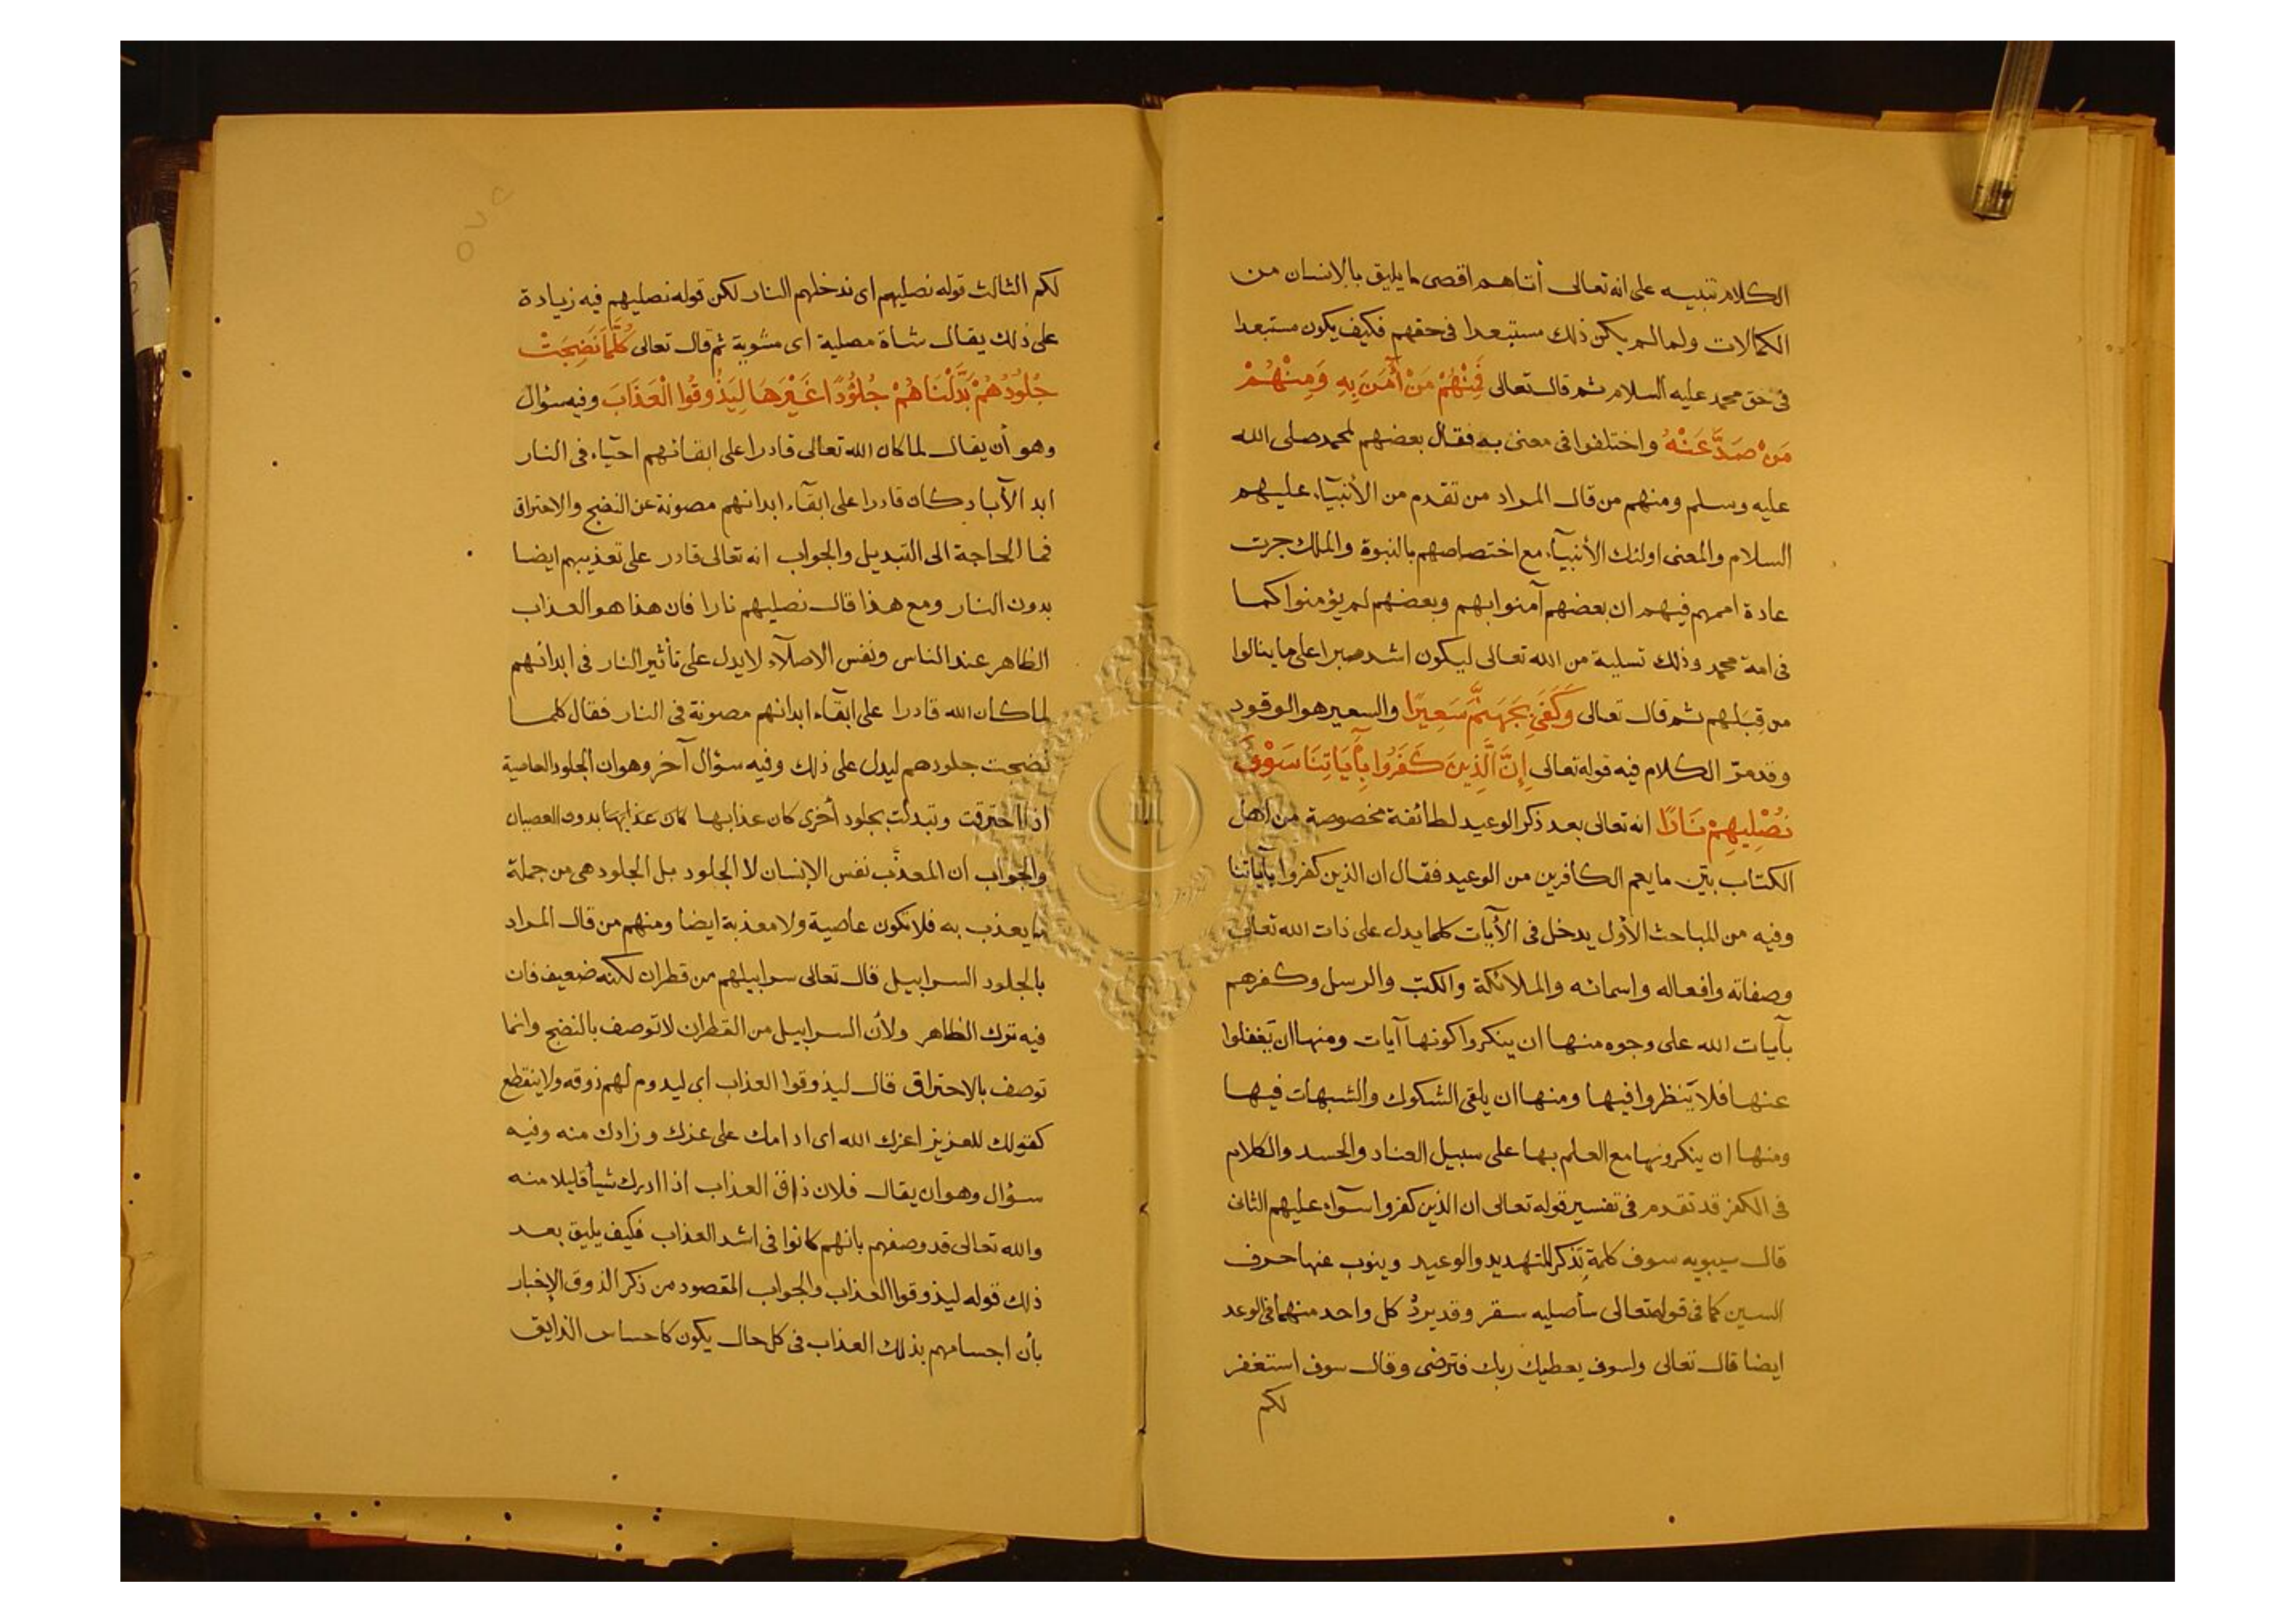 الكلام تنبيه على انه تعالى أتاهم اقصى ما يليق بالانسان من
الكمالات ولما لم يكن ذلك مستبعدا فى حقهم فكيف يكون مستبعدا
فى حق محمد عليه السلام ثم قال تعالى فَمِنْهُمْ مَنْ أٰمَنَ بِهِ وَمِنْهُمْ
مَنْ صَدَّ عَنْهُ واختلفوا فى معنى به فقال بعضهم لمحمد صلى الله
عليه وسلم ومنهم من قال المراد من تقدم من الأنبيآء عليهم
السلام والمعنى اولئك الأنبيآء مع اختصاصهم بالنبوة والملك جرت
عادة اممهم فيهم ان بعضهم آمنوا بهم وبعضهم لم يؤمنوا كما
فى امة محمد وذلك تسلية من الله تعالى ليكون اشد صبرا على ما ينالوا
من قِبَلهم ثم قال تعالى وَكَفَىٰ بِجَهَنَّمَ سَعِيرًا والسعير هو الوقود
وقد مرّ الكلام فيه قوله تعالى إِنَّ الَّذِينَ كَفَرُوا بِأٰيَاتِنَا سَوْفَ
نُصْلِيهِمْ نَارًا انه تعالى بعد ذكر الوعيد لطائفة مخصوصة من اهل
الكتاب بيّن ما يعم الكافرين من الوعيد فقال ان الذين كفروا بآياتنا
وفيه من المباحث الأول يدخل فى الأيات كلما يدل على ذات الله تعالى
وصفاته وافعاله واسمائه والملائكة والكتب والرسل وكفرهم
بآيات الله على وجوه منها ان ينكروا كونها آيات ومنها ان يغفلوا
عنها فلا ينظروا فيها ومنها ان يلقى الشكوك والشبهات فيها
ومنها ان ينكرونها مع العلم بها على سبيل العناد والحسد والكلام
فى الكفر قد تقدم فى تفسير قوله تعالى ان الذين كفروا سوآء عليهم الثانى
قال سيبويه سوف كلمة تذكر للتهديد والوعيد وينوب عنها حرف
السين كما فى قوله تعالى سأصليه سقر وقد يردُ كل واحد منهما فى الوعد
ايضا قال تعالى ولسوف يعطيك ربك فترضى وقال سوف استغفر
لكم
لكم الثالث قوله نصليهم اى ندخلهم النار لكن قوله نصليهم فيه زيادة
على ذلك يقال شاة مصلية اى مشوية ثم قال تعالى كُلَّمَا نَضِجَتْ
جُلُودُهُمْ بَدَّلْنَاهُمْ جُلُوُدًا غَيْرَهَا لِيَذُوقُوا الْعَذَابَ وفيه سؤال
وهو أن يقال لما كان الله تعالى قادرا على ابقائهم احيآء فى النار
ابد الآباد كان قادرا على ابقآء ابدانهم مصونة عن النضج والاحتراق
فما الحاجة الى التبديل والجواب انه تعالى قادر على تعذيبهم ايضا
بدون النار ومع هذا قال نصليهم نارا فان هذا هو العذاب
الظاهر عند الناس ونفس الاصلآء لا يدل على تأثير النار فى ابدانهم
لما كان الله قادرا على ابقآء ابدانهم مصونة فى النار فقال كلما
نضجت جلودهم ليدل على ذلك وفيه سؤال آخر وهو ان الجلود العاصية
اذا احترقت وتبدلت بجلود أخرى كان عذابها كان عذابها بدون العصيان
والجواب ان المعذّب نفس الإنسان لا الجلود بل الجلود هى من جملة
ما يعذب به فلا تكون عاصية ولا معذبة ايضا ومنهم من قال المراد
بالجلود السرابيل قال تعالى سرابيلهم من قطران لكنه ضعيف فان
فيه ترك الظاهر ولأن السرابيل من القطران لا توصف بالنضج وانما
توصف بالاحتراق قال ليذوقوا العذاب اى ليدوم لهم ذوقه ولا ينقطع
كقولك للعزيز اعزك الله اى ادامك على عزك وزادك منه وفيه
سؤال وهو ان يقال فلان ذاق العذاب اذا ادرك شيأ قليلا منه
والله تعالى قد وصفهم بانهم كانوا فى اشد العذاب فكيف يليق بعد
ذلك قوله ليذوقوا العذاب والجواب المقصود من ذكر الذوق الإخبار
بأن اجسامهم بذلك العذاب فى كل حال يكون كاحساس الذايق